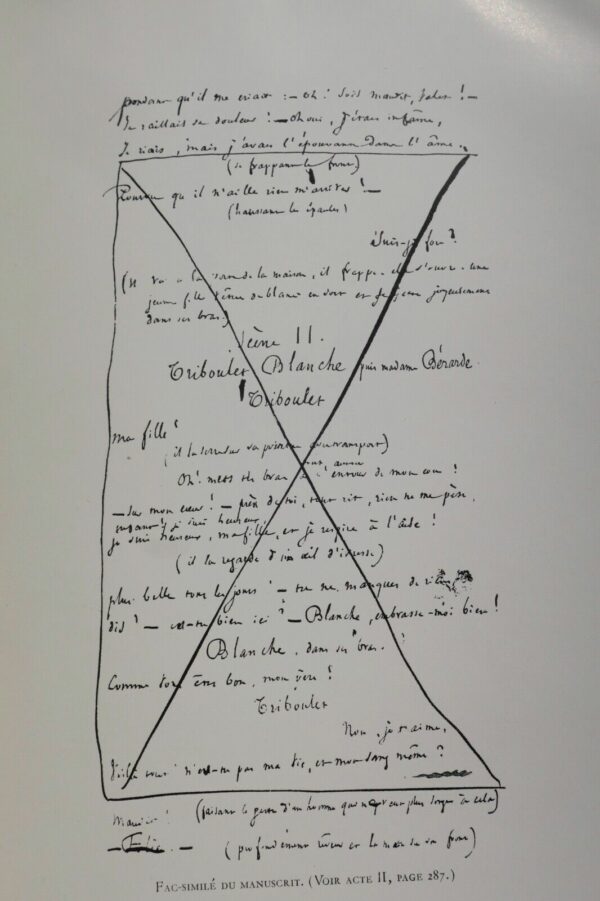 pendant qu'il me criait :— Oh ! sois maudit, valet ! —
Je raillais sa douleur ! — oh oui, j'étais infâme,
Je riais, mais j'avais l'épouvante dans l'âme.
(se frappant le front)
Pourvu qu'il n'aille rien m'arriver ! —
(haussant les épaules)
Suis-je fou ?
(il va à la porte de la maison, il frappe. elle s'ouvre. une
jeune fille vêtue de blanc en sort et se jette joyeusement
dans ses bras.)
Scène II.
Triboulet Blanche puis madame Bérarde
Triboulet
Ma fille !
(il la serre sur sa poitrine avec transport)
Oh ! mets tes bras à l'entour de mon cou !
— Sur mon cœur ! — près de toi, tout rit, rien ne me pèse,
enfant, je suis heureux,
je suis heureux, ma fille, et je respire à l'aise !
(il la regarde d'un œil d'ivresse)
plus belle tous les jours ! — tu ne manques de rien,
dis ? — es-tu bien ici ? — Blanche, embrasse-moi bien !
Blanche, dans ses bras.
Comme vous êtes bon, mon père !
Triboulet
Non, je t'aime,
Voilà tout ! n'es-tu pas ma vie, et mon sang même ?
Maudit ! (faisant le geste d'un homme qui ne veut plus songer à cela)
— Folie. — (profondément rêveur et la main sur son front)
FAC-SIMILÉ DU MANUSCRIT. (VOIR ACTE II, PAGE 287.)